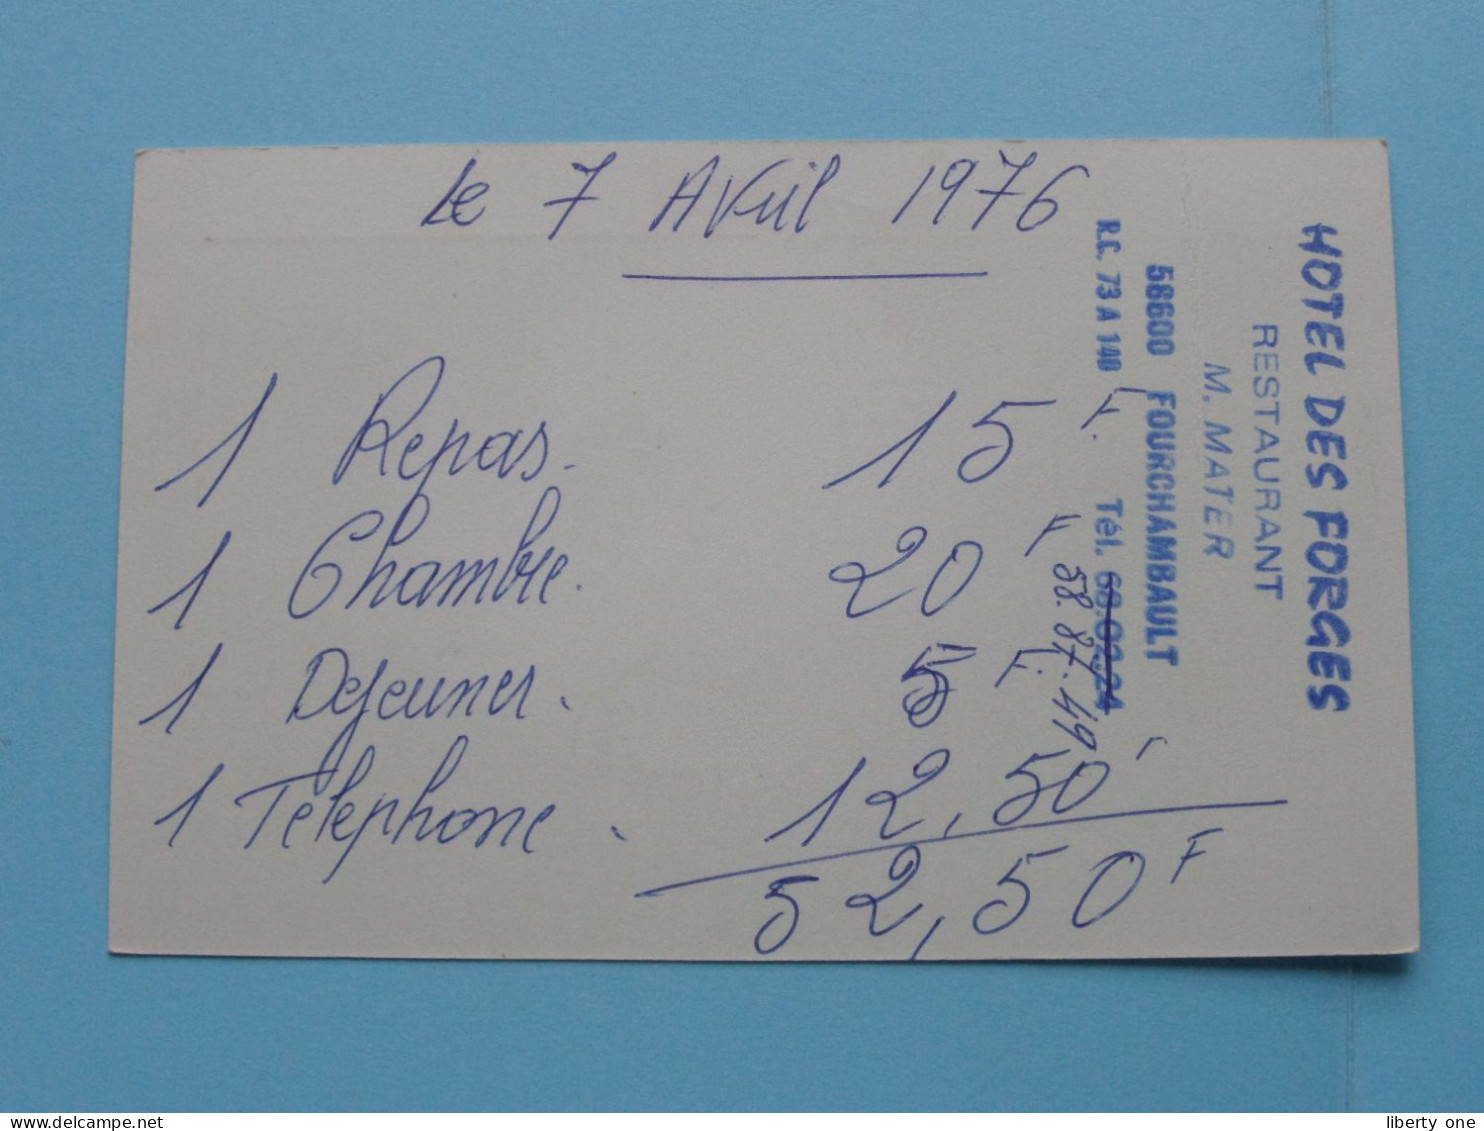 le 7 Avril 1976
1 Repas. 15 F.
1 Chambre. 20 F
1 Dejeuner. 5 F.
1 Telephone. 12,50 F
52,50 F
HOTEL DES FORGES
RESTAURANT
M. MATER
58600 FOURCHAMBAULT
R.C. 73 A 140 Tél. 68.02.24
58.87.49
www.delcampe.net
liberty one